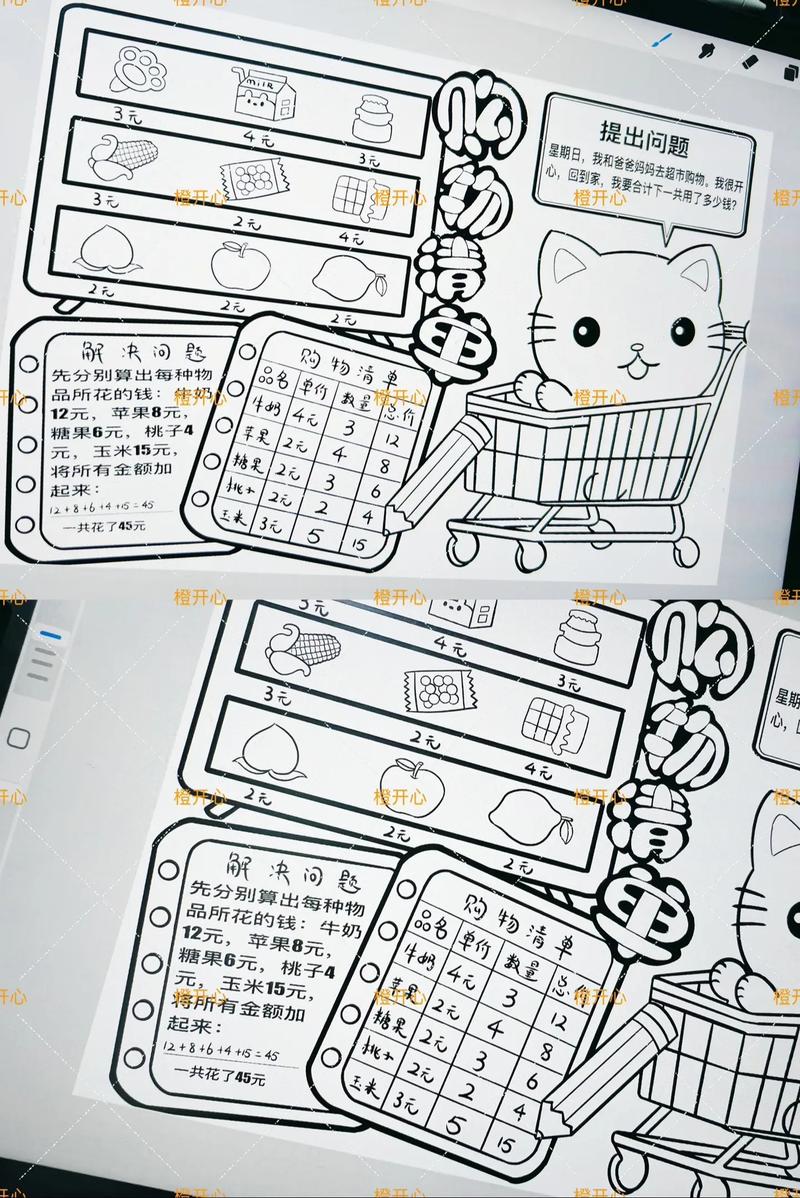 橙开心 橙开心 橙开心 橙开心
milk
3元 4元 3元
3元 2元 4元
2元 2元 2元
购物清单
提出问题
星期日，我和爸爸妈妈去超市购物。我很开
心，回到家，我要合计下一共用了多少钱？
解决问题
先分别算出每种物
品所花的钱：牛奶
12元，苹果8元，
糖果6元，桃子4
元，玉米15元，
将所有金额加
起来：
12+8+6+4+15=45
一共花了45元
购物清单
品名 单价 数量 总价
牛奶 4元 3 12
苹果 2元 4 8
糖果 2元 3 6
桃子 2元 2 4
玉米 3元 5 15
橙开心 橙开心 橙开心 橙开心
3元 4元 3元
3元 2元 4元
2元 2元 2元
购物清单
星期
心，
解决问题
先分别算出每种物
品所花的钱：牛奶
12元，苹果8元，
糖果6元，桃子4
元，玉米15元，
将所有金额加
起来：
12+8+6+4+15=45
一共花了45元
购物清单
品名 单价 数量 总
牛奶 4元 3 12
苹果 2元 4 8
糖果 2元 3 6
桃子 2元 2 4
玉米 3元 5 15
橙开心 橙开心 橙开心 橙开心